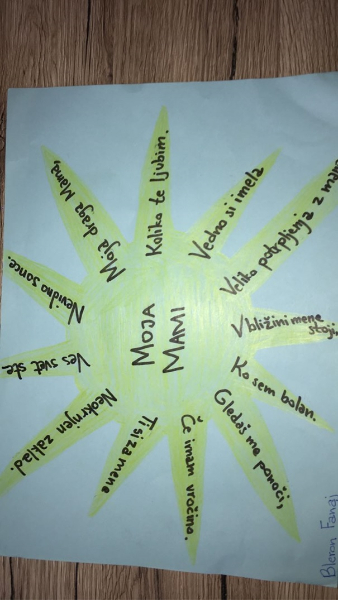 MOJA
MAMI
Moja draga Mama,
Koliko te ljubim.
Vedno si imela
Veliko potrpljenja z mano
V bližini mene
Ko sem bolan.
Gledaš me ponoči,
Če imam vročino.
Ti si za mene
Neokrnjen zaklad.
Ves svet ste-
Nevidno sonce.
Bleron